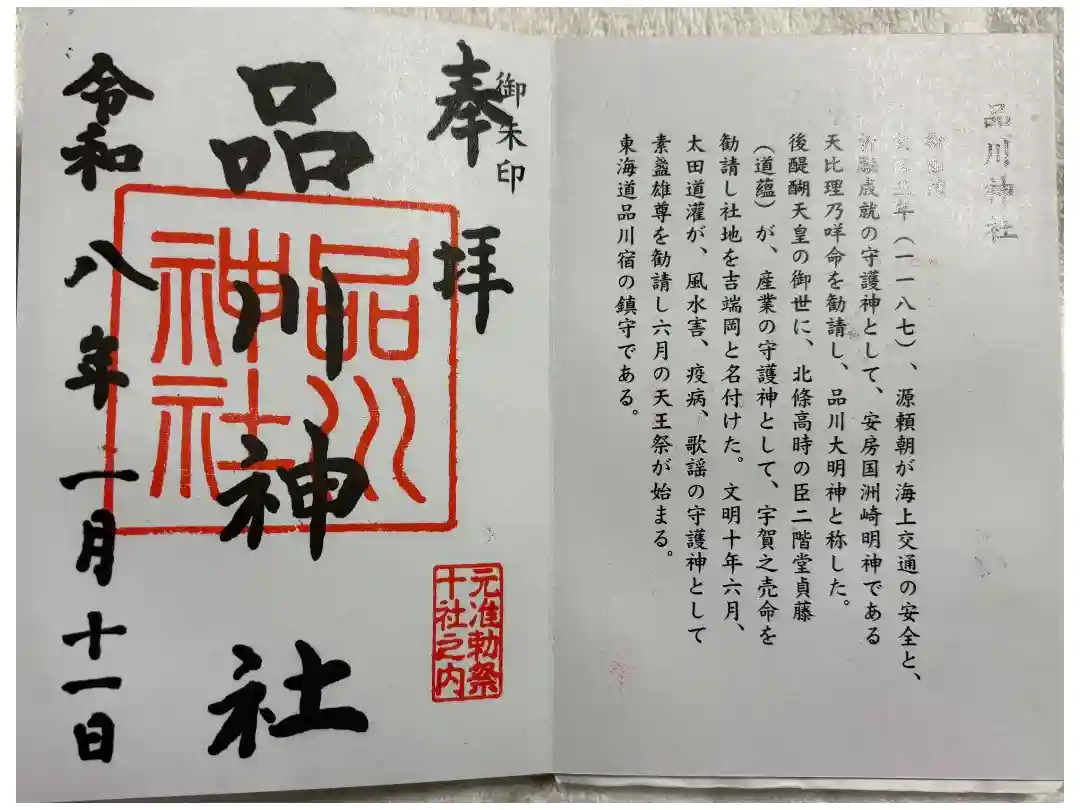 品川神社
文治三年（一一八七）、源頼朝が海上交通の安全と、
祈願成就の守護神として、安房国洲崎明神である
天比理乃咩命を勧請し、品川大明神と称した。
後醍醐天皇の御世に、北條高時の臣二階堂貞藤
（道蘊）が、産業の守護神として、宇賀之売命を
勧請し社地を吉端岡と名付けた。文明十年六月、
太田道灌が、風水害、疫病、歌謡の守護神として
素盞雄尊を勧請し六月の天王祭が始まる。
東海道品川宿の鎮守である。
御朱印
奉拝
元准勅祭
十社之内
品川神社
品川
神社
令和八年一月十一日